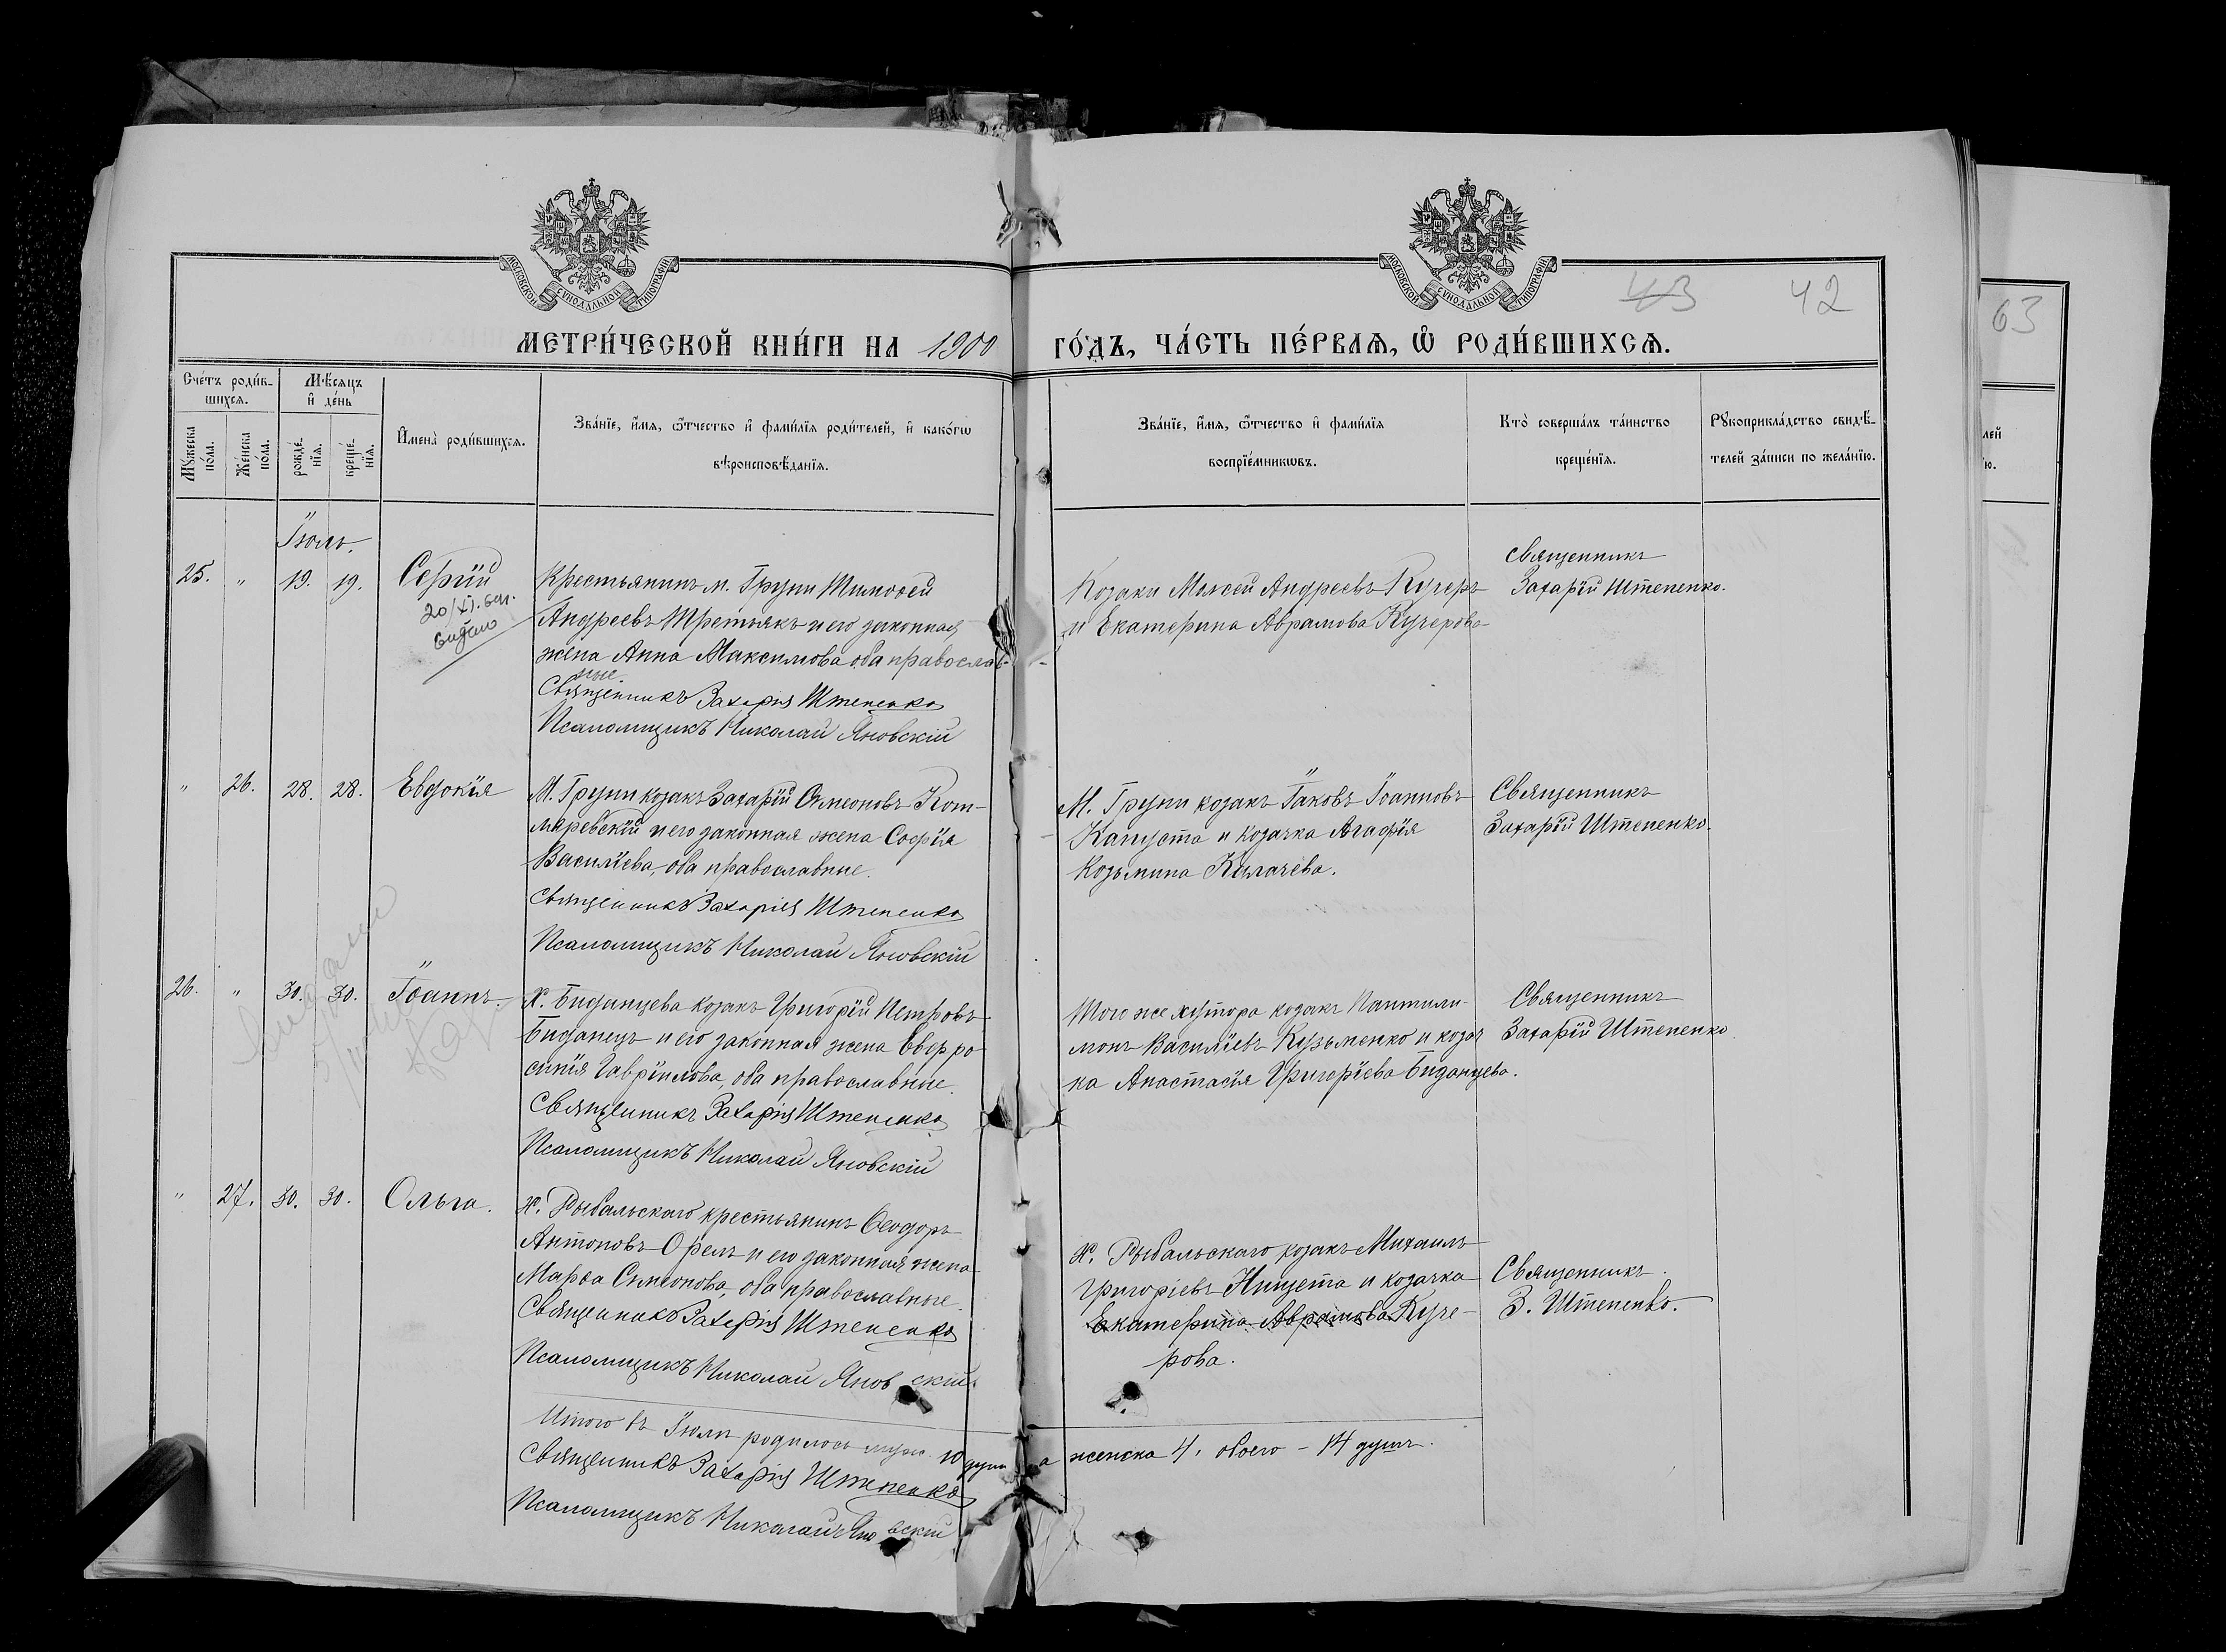 МОСКОВСКОЙ СѴНОДАЛЬНОЙ ТИПОГРАФІИ
МОСКОВСКОЙ СѴНОДАЛЬНОЙ ТИПОГРАФІИ
43 42
63
МЕТРИ́ЧЕСКОЙ КНИ́ГИ НА 1900 ГО́ДЪ, ЧА́СТЬ ПЕ́РВАѦ, Ѡ҆ РОДИ́ВШИХСѦ.
Сче́тъ роди́в-
шихсѧ.
Мѣ́сѧцъ
и҆ де́нь
Мꙋ́жеска по́ла.
Же́нска по́ла.
рожде́-
нїѧ.
креще́-
нїѧ.
И҆мена̀ роди́вшихсѧ.
Зва́нїе, и҆́мѧ, ѻ҆́тчество и҆ фами́лїѧ роди́телей, и҆ како́гѡ
вѣроисповѣ́данїѧ.
Зва́нїе, и҆́мѧ, ѻ҆́тчество и҆ фами́лїѧ
воспрїе́мникѡвъ.
Кто̀ соверша́лъ та́инство
креще́нїѧ.
Рꙋкоприкла́дство свидѣ́-
телей за́писи по жела́нїю.
Іюль.
25. " 19. 19. Сергій
20/XI.
видано
Крестьянинъ м. Груни Тимоѳей
Андреевъ Третьякъ и его законная
жена Анна Максимова оба православ-
ные.
Священникъ Захарій Штепенко
Псаломщикъ Николай Яновскій
Козаки Моисей Андреевъ Кучеръ
и Екатерина Аврамова Кучерова
Священникъ
Захарій Штепенко.
" 26. 28. 28. Евдокія
М. Груни козакъ Захарій Симеоновъ Кот-
ляревскій и его законная жена Софія
Василіева, оба православные.
Священникъ Захарій Штепенко
Псаломщикъ Николай Яновскій
М. Груни козакъ Іаковъ Іоанновъ
Капуста и козачка Агафія
Козьмина Калачева.
Священникъ
Захарій Штепенко.
26. " 30. 30. Іоаннъ.
Х. Биданцева козакъ Григорій Петровъ
Биданецъ и его законная жена Евфро
синія Гавріилова, оба православные.
Священникъ Захарій Штепенко
Псаломщикъ Николай Яновскій
Того же хутора козакъ Пантили-
монъ Василіевъ Кузьменко и козач
ка Анастасія Григоріева Биданцева.
Священникъ
Захарій Штепенко
" 27. 30. 30. Ольга.
Х. Рыбальскаго крестьянинъ Ѳеодоръ
Антоновъ Орелъ и его законная жена
Марѳа Симеонова, оба православные.
Священникъ Захарій Штепенко
Псаломщикъ Николай Яновскій
Х. Рыбальскаго козакъ Михаилъ
Григоріевъ Нищета и козачка
Екатерина Аврамова Куче-
рова.
Священникъ
З. Штепенко.
Итого въ Іюлѣ родилось муж. 10 душъ а женска 4, обоего – 14 душъ.
Священникъ Захарій Штепенко
Псаломщикъ Николай Яновскій